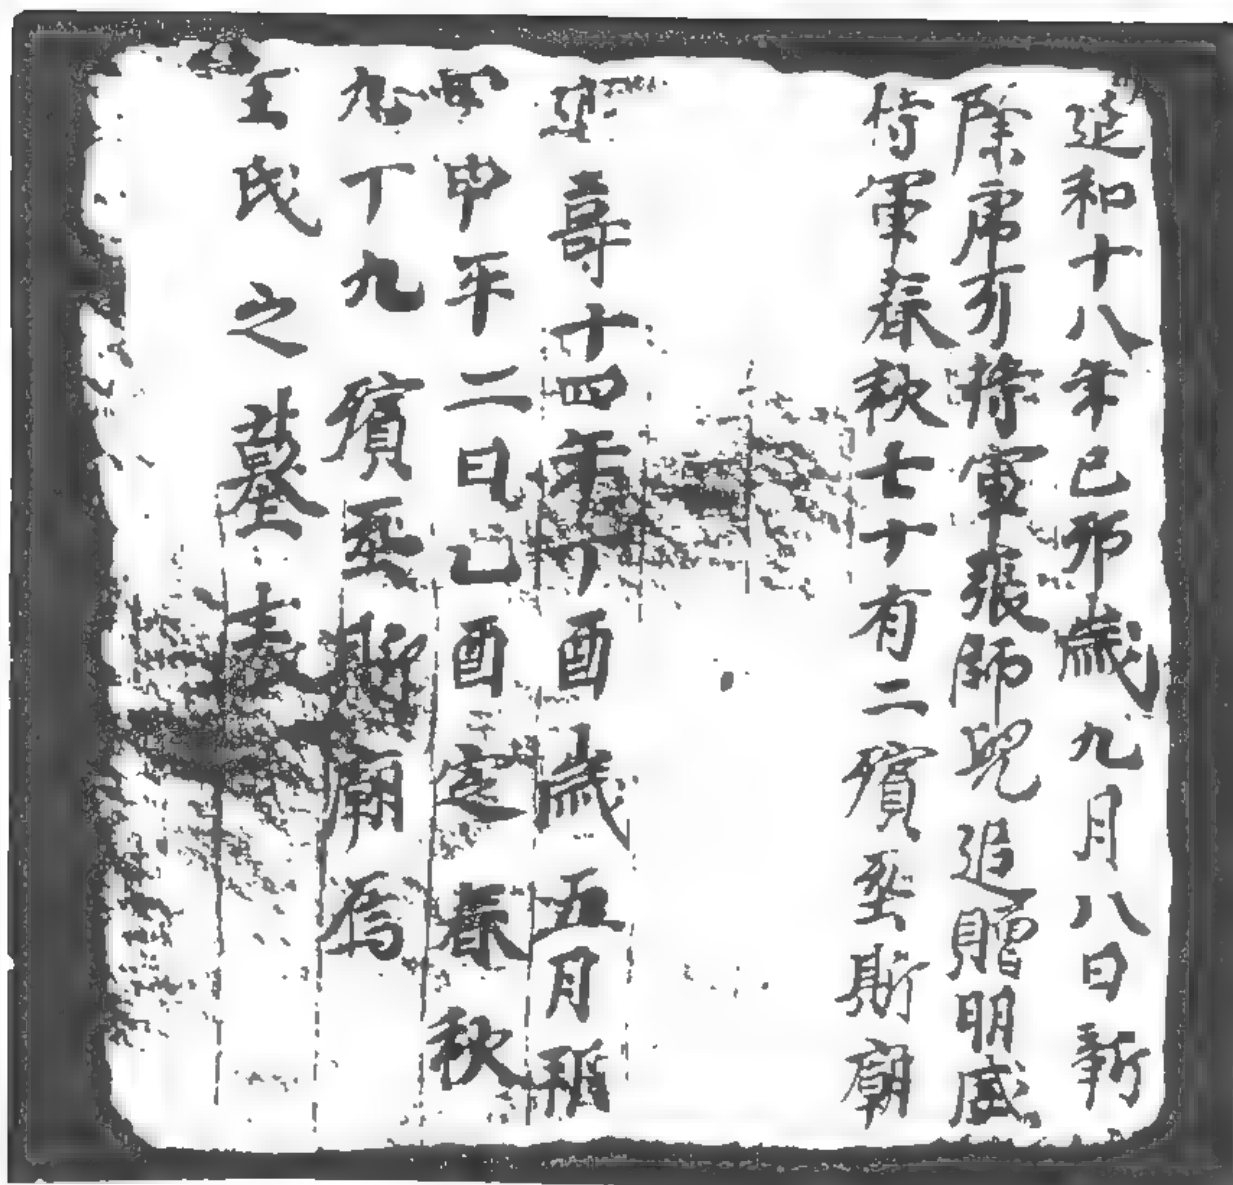 延和十八年己卯歲九月八日新
除虎牙將軍張師兒追贈明威
將軍春秋七十有二殯葬斯廟
延壽十四年丁酉歲五月
甲申平二日乙酉定春秋
九丁九殯葬斯廟焉
王氏之墓表